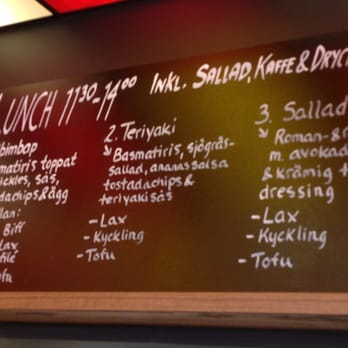 LUNCH 11³⁰-14⁰⁰ INKL. SALLAD, KAFFE & DRYC
bimbap
matiris toppat
ickles, sås
dachips & ägg
lan:
Biff
Lax
filé
ofu
2. Teriyaki
Basmatiris, sjögräs-
sallad, ananassalsa
tostadachips &
teriyakisås
- Lax
- Kyckling
- Tofu
3. Sallad
Roman- &
m. avokad
& krämig
dressing
- Lax
- Kyckling
- Tofu